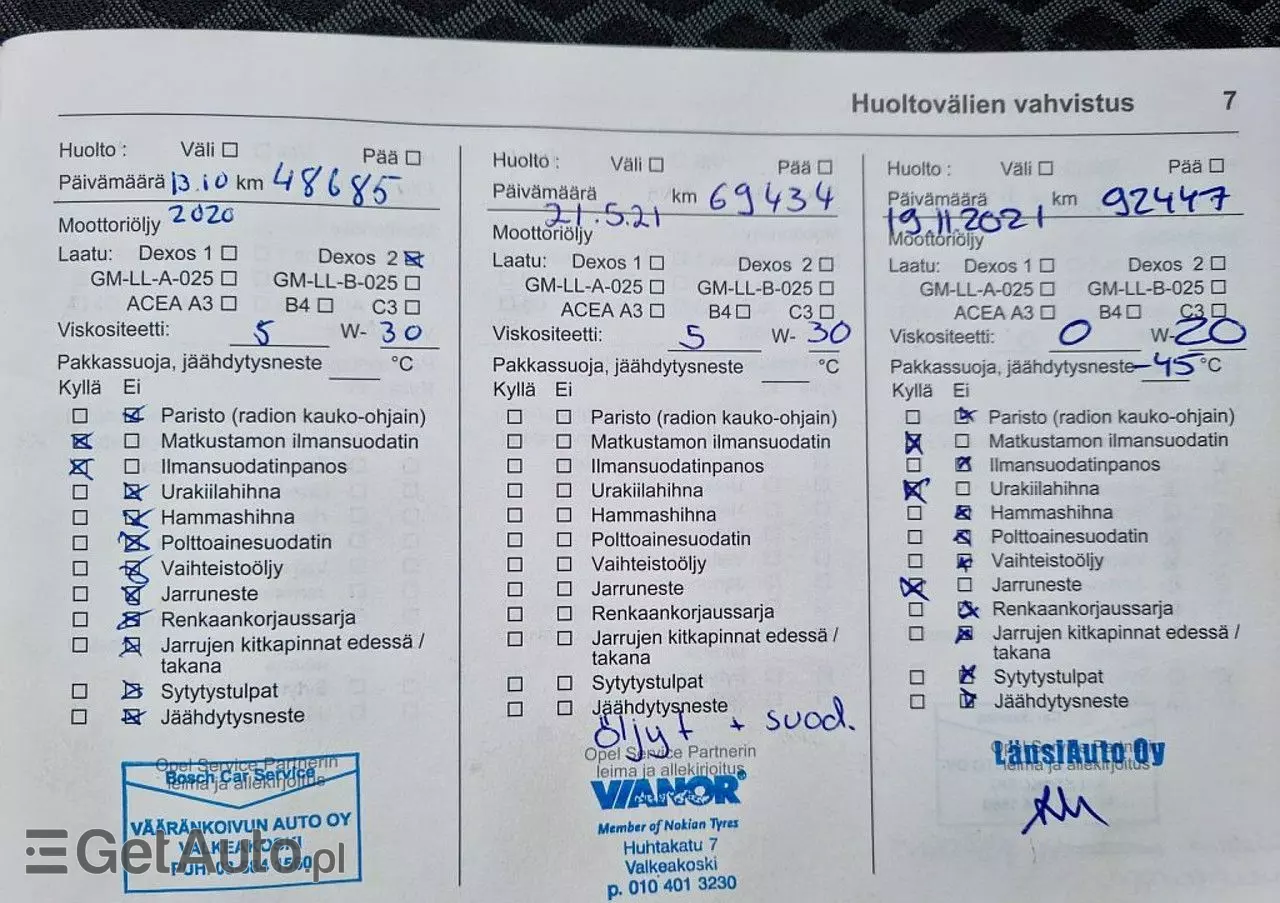 Huoltovälien vahvistus 7
Huolto : Väli Pää
Päivämäärä 13.10 km 48685
2020
Moottoriöljy
Laatu: Dexos 1 Dexos 2
GM-LL-A-025 GM-LL-B-025
ACEA A3 B4 C3
Viskositeetti: 5 W- 30
Pakkassuoja, jäähdytysneste °C
Kyllä Ei
Paristo (radion kauko-ohjain)
Matkustamon ilmansuodatin
Ilmansuodatinpanos
Urakiilahihna
Hammashihna
Polttoainesuodatin
Vaihteistoöljy
Jarruneste
Renkaankorjaussarja
Jarrujen kitkapinnat edessä /
takana
Sytytystulpat
Jäähdytysneste
Opel Service Partnerin
Bosch Car Service
leima ja allekirjoitus
VÄÄRÄNKOIVUN AUTO OY
VALKEAKOSKI
GetAuto.pl
Huolto : Väli Pää
Päivämäärä km 69434
21.5.21
Moottoriöljy
Laatu: Dexos 1 Dexos 2
GM-LL-A-025 GM-LL-B-025
ACEA A3 B4 C3
Viskositeetti: 5 W- 30
Pakkassuoja, jäähdytysneste °C
Kyllä Ei
Paristo (radion kauko-ohjain)
Matkustamon ilmansuodatin
Ilmansuodatinpanos
Urakiilahihna
Hammashihna
Polttoainesuodatin
Vaihteistoöljy
Jarruneste
Renkaankorjaussarja
Jarrujen kitkapinnat edessä /
takana
Sytytystulpat
Jäähdytysneste
Öljyt + suod.
Opel Service Partnerin
leima ja allekirjoitus
VIANOR
Member of Nokian Tyres
Huhtakatu 7
Valkeakoski
p. 010 401 3230
Huolto : Väli Pää
Päivämäärä km 92447
19.11.2021
Moottoriöljy
Laatu: Dexos 1 Dexos 2
GM-LL-A-025 GM-LL-B-025
ACEA A3 B4 C3
Viskositeetti: 0 W- 20
Pakkassuoja, jäähdytysneste -45 °C
Kyllä Ei
Paristo (radion kauko-ohjain)
Matkustamon ilmansuodatin
Ilmansuodatinpanos
Urakiilahihna
Hammashihna
Polttoainesuodatin
Vaihteistoöljy
Jarruneste
Renkaankorjaussarja
Jarrujen kitkapinnat edessä /
takana
Sytytystulpat
Jäähdytysneste
Opel Service Partnerin
LänsiAuto Oy
leima ja allekirjoitus